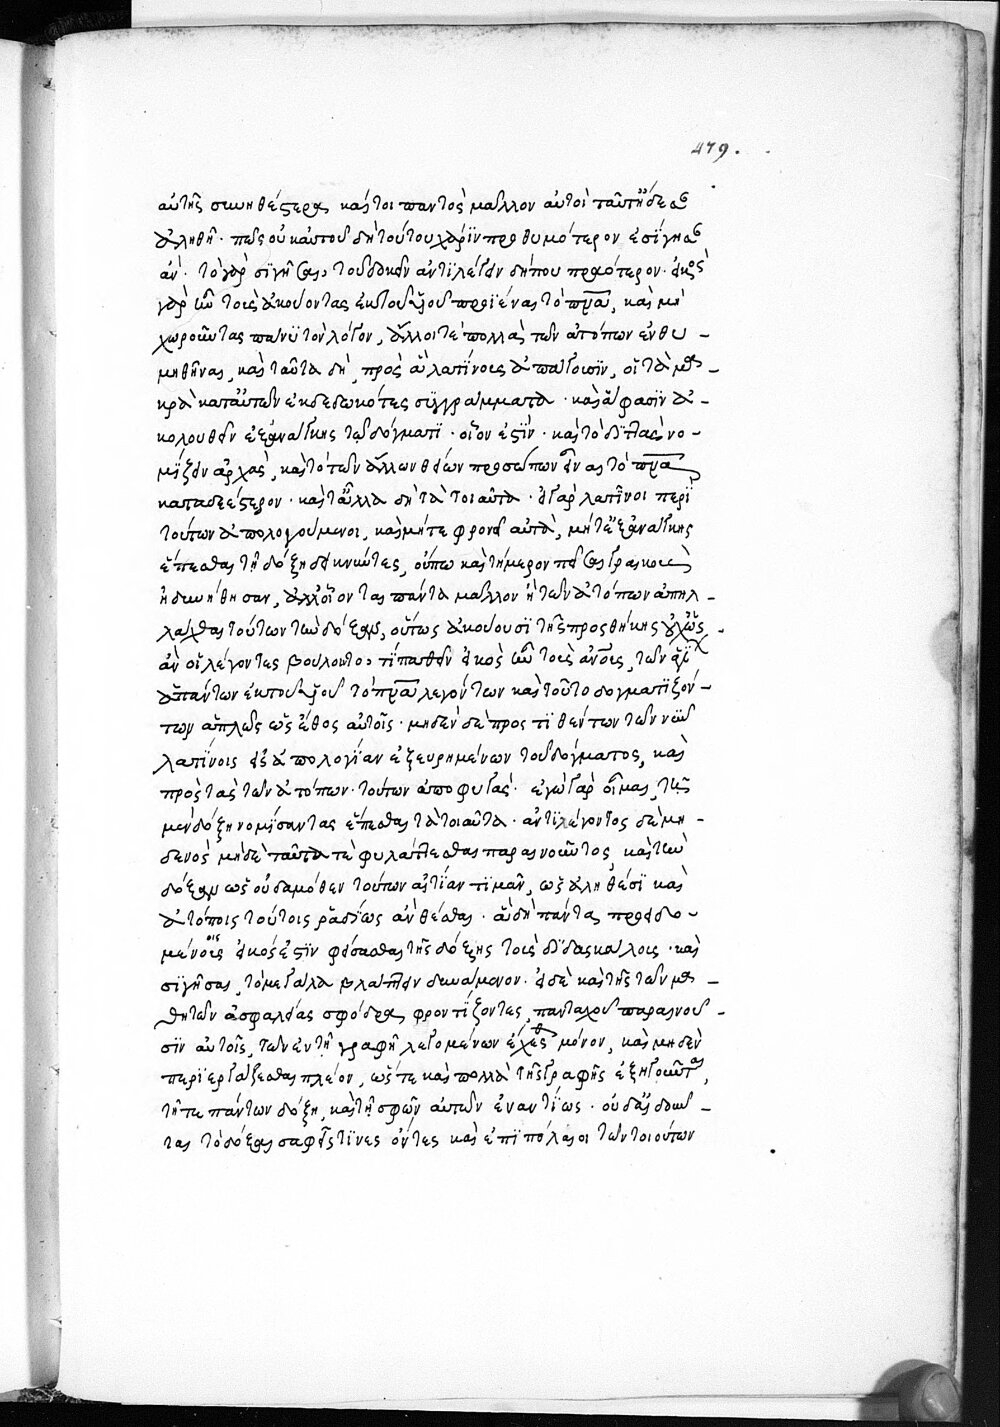 479.
αὐτῆς συνηθέστερα καίτοι παντὸς μᾶλλον αὐτοὶ ταύτῃ
ἀληθῆ. πῶς οὐκ αὐτοῦ δὴ τούτου χάριν προθυμότερον ἐσίγησ
ἄν. τὸ γὰρ σιγῆσαι, τοῦ δοκεῖν ἀντιλέγειν δήπου πραότερον. εἰκὸς
γὰρ ἦν τοὺς ἀκούοντας ἐκ τοῦ υἱοῦ προϊέναι τὸ πνα, καὶ μὴ
χωροῦντας πάνυ τὸν λόγον, ἄλλοι τε πολλὰ τῶν ἀτόπων ἐνθυ-
μηθῆναι, καὶ ταῦτα δὴ, πρὸς ἃ λατίνοις ἀπαντῶσιν, οἱ τὰ μα-
κρὰ κατ' αὐτῶν ἐκδεδωκότες συγγράμματα. καὶ ἅ φασιν ἀ-
κολουθεῖν ἐξ ἀνάγκης τῷ δόγματι. οἷον ἐστὶν. καὶ τὸ διπλᾶς νο-
μίζειν ἀρχὰς, καὶ τὸ τῶν ἄλλων θείων προσώπων εἶναι τὸ πνα
καταδεέστερον. καὶ τἄλλα δὴ τὰ τοιαῦτα. εἰ γὰρ λατῖνοι περὶ
τούτων ἀπολογούμενοι, καὶ μήτε φρονεῖν αὐτὰ, μήτε ἐξ ἀνάγκης
ἕπεσθαι τῇ δόξῃ δεικνύντες, οὔπω καὶ τήμερον πεῖσαι γραικοὺς
ἠδυνήθησαν, ἀλλ' οἴονται πάντα μᾶλλον ἢ τῶν ἀτόπων ἀπηλ-
λάχθαι τούτων τὴν δόξαν, οὕτως ἀκούουσι τῆς προσθήκης
ἂν οἱ λέγοντες βούλοιντο, τί παθεῖν εἰκὸς ἦν τοὺς ἀνους, τῶν
ἁπάντων ἐκ τοῦ υἱοῦ τὸ πνα λεγόντων καὶ τοῦτο δογματιζόν-
των ἁπλῶς ὡς ἔθος αὐτοῖς. μηδὲν δὲ προστιθέντων τῶν νῦν
λατίνοις εἰς ἀπολογίαν ἐξευρημένων τοῦ δόγματος, καὶ
πρὸς τὰς τῶν ἀτόπων τούτων ἀποφυγάς. ἐγὼ γὰρ οἶμαι, τῇ
μὲν δόξῃ νομίσαντας ἕπεσθαι τὰ τοιαῦτα. ἀντιλέγοντος δὲ μη-
δενὸς μηδὲ ταῦτά τε φυλάττεσθαι παραινοῦντος, καὶ τὴν
δόξαν ὡς οὐδαμόθεν τούτων αἰτίαν τιμᾶν, ὡς ἀληθέσι καὶ
ἀτόποις τούτοις ῥᾳδίως ἂν θέσθαι. ἃ δὴ πάντα προειδο-
μένους εἰκός ἐστιν φείσασθαι τῆς δόξης τοὺς διδασκάλους. καὶ
σιγῆσαι, τὸ μεγάλα βλάπτειν δυνάμενον. εἰ δὲ καὶ τῆς τῶν μα-
θητῶν ἀσφαλείας σφόδρα φροντίζοντες, πανταχοῦ παραινοῦ-
σιν αὐτοῖς, τῶν ἐν τῇ γραφῇ λεγομένων ἔχεσθαι μόνον, καὶ μηδὲν
περιεργάζεσθαι πλεῖον, ὥστε καὶ πολλὰ τῆς γραφῆς ἐξηγοῦνται,
τῇ τε πάντων δόξῃ, καὶ τῇ σφῶν αὐτῶν ἐναντίως.
τας τὸ δόξαι σαφεῖς τινες ὄντες καὶ ἐπιπόλαιοι τῶν τοιούτων